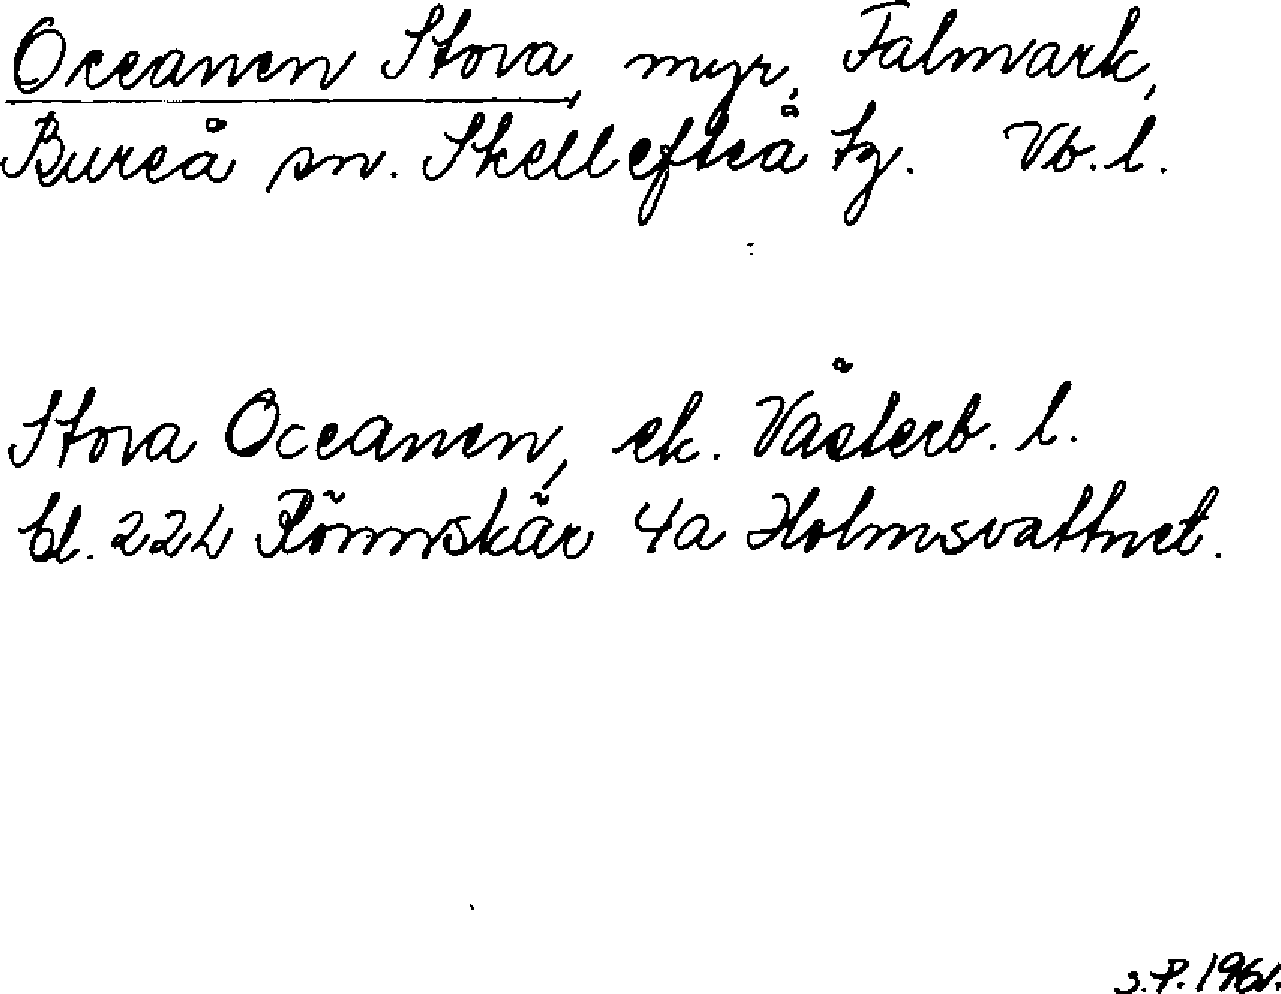 Oceanen Stora, myr, Falmark,
Bureå sn. Skellefteå tg. Vb. l.
Stora Oceanen, ek. Västerb. l.
bl. 22L Rönnskär 4a Holmsvattnet.
S.P. 1961.